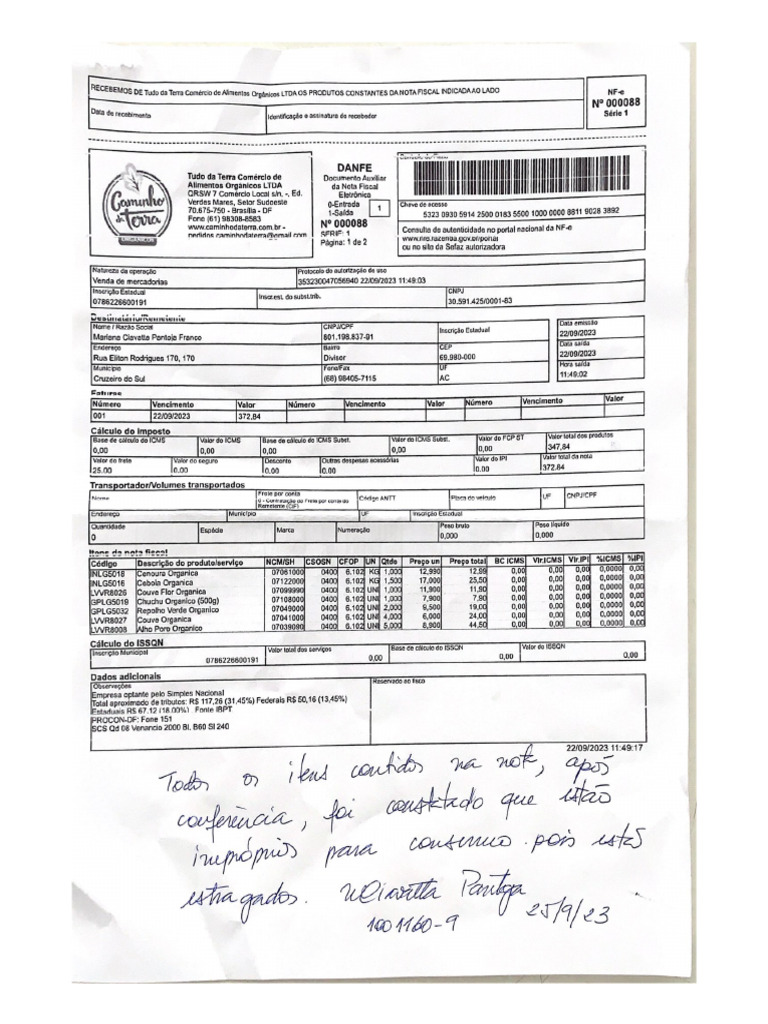 RECEBEMOS DE Tudo da Terra Comércio de Alimentos Orgânicos LTDA OS PRODUTOS CONSTANTES DA NOTA FISCAL INDICADA AO LADO
Data de recebimento Identificação e assinatura de recebedor
NF-e
Nº 000088
Série 1
Caminho da Terra
ORGÂNICOS
Tudo da Terra Comércio de
Alimentos Orgânicos LTDA
QRSW 7 Comércio Local s/n, -, Ed.
Verdes Mares, Setor Sudoeste
70.675-750 - Brasília - DF
Fone (61) 98308-8583
www.caminhodaterra.com.br -
pedidos.caminhodaterra@gmail.com
DANFE
Documento Auxiliar
da Nota Fiscal
Eletrônica
0-Entrada
1-Saída
1
Nº 000088
SERIE: 1
Página: 1 de 2
Controle do Fisco
Chave de acesso
5323 0930 5914 2500 0183 5500 1000 0000 8811 9028 3892
Consulta de autenticidade no portal nacional da NF-e
www.nfe.fazenda.gov.br/portal
ou no site da Sefaz autorizadora
Natureza da operação Protocolo de autorização de uso
Venda de mercadorias 353230047056940 22/09/2023 11:49:03
Inscrição Estadual Inscr.est. do subst.trib. CNPJ
0786226600191 30.591.425/0001-83
Destinatário/Remetente
Nome / Razão Social CNPJ/CPF Inscrição Estadual Data emissão
Mariana Ciavatta Pantoja Franco 801.198.837-91 22/09/2023
Endereço Bairro CEP Data saída
Rua Eliton Rodrigues 170, 170 Divisor 69.980-000 22/09/2023
Município Fone/Fax UF Hora saída
Cruzeiro do Sul (68) 98405-7115 AC 11:49:02
Faturas
Número Vencimento Valor Número Vencimento Valor Número Vencimento Valor
001 22/09/2023 372,84
Cálculo do imposto
Base de cálculo do ICMS Valor do ICMS Base de cálculo do ICMS Subst. Valor do ICMS Subst. Valor do FCP ST Valor total dos produtos
0,00 0,00 0,00 0,00 0,00 347,84
Valor do frete Valor do seguro Desconto Outras despesas acessórias Valor do IPI Valor total da nota
25,00 0,00 0,00 0,00 0,00 372,84
Transportador/Volumes transportados
Nome Frete por conta Código ANTT Placa do veículo UF CNPJ/CPF
0 - Contratação do Frete por conta do
Remetente (CIF)
Endereço Município UF Inscrição Estadual
Quantidade Espécie Marca Numeração Peso bruto Peso líquido
0 0,000 0,000
Itens da nota fiscal
Código Descrição do produto/serviço NCM/SH CSOSN CFOP UN Qtde Preço un Preço total BC ICMS Vlr.ICMS Vlr.IPI %ICMS %IPI
INLG5018 Cenoura Organica 07061000 0400 6.102 KG 1,000 12,990 12,99 0,00 0,00 0,00 0,0000 0,00
INLG5016 Cebola Organica 07122000 0400 6.102 KG 1,500 17,000 25,50 0,00 0,00 0,00 0,0000 0,00
LVVR8026 Couve Flor Organica 07099990 0400 6.102 UNI 1,000 11,900 11,90 0,00 0,00 0,00 0,0000 0,00
GPLG5019 Chuchu Organico (500g) 07108000 0400 6.102 UNI 1,000 7,900 7,90 0,00 0,00 0,00 0,0000 0,00
GPLG5032 Repolho Verde Organico 07049000 0400 6.102 UNI 2,000 9,500 19,00 0,00 0,00 0,00 0,0000 0,00
LVVR8027 Couve Organica 07041000 0400 6.102 UNI 4,000 6,000 24,00 0,00 0,00 0,00 0,0000 0,00
LVVR8008 Alho Poro Organico 07039090 0400 6.102 UNI 5,000 8,900 44,50 0,00 0,00 0,00 0,0000 0,00
Cálculo do ISSQN
Inscrição Municipal Valor total dos serviços Base de cálculo do ISSQN Valor do ISSQN
0786226600191 0,00 0,00 0,00
Dados adicionais
Observações Reservado ao fisco
Empresa optante pelo Simples Nacional
Total aproximado de tributos: R$ 117,26 (31,45%) Federais R$ 50,16 (13,45%)
Estaduais R$ 67,12 (18,00%) . Fonte IBPT
PROCON-DF: Fone 151
SCS Qd 08 Venancio 2000 Bl. B60 Sl 240
22/09/2023 11:49:17
Todos os itens contidos na nota, após
conferência, foi constatado que estão
impróprios para consumo pois estão
estragados. MCiavatta Pantoja
1001160-9 25/9/23